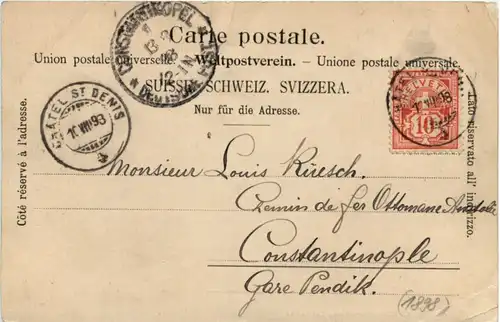 Carte postale.
Union postale universelle. — Weltpostverein. — Unione postale universale.
SUISSE. SCHWEIZ. SVIZZERA.
Nur für die Adresse.
Côté réservé à l'adresse.
Lato riservato all' indirizzo.
CONSTANTINOPEL
13
98
12-1N
DEUTSCHE
CHÂTEL ST DENIS
10 VIII 98
HELVETIA
10
Monsieur Louis Rüesch.
Chemin de fer Ottomane Anatolie
Constantinople
Gare Pendik.
(1898)